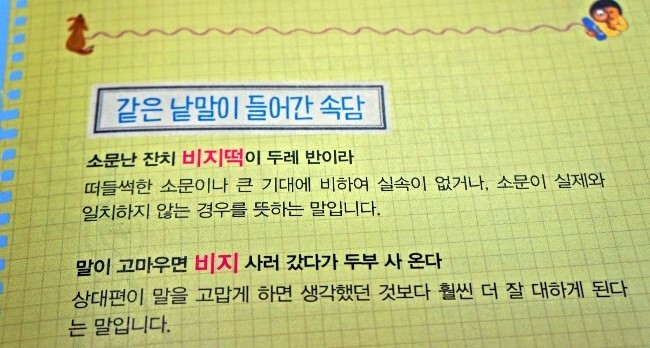 같은 낱말이 들어간 속담
소문난 잔치 비지떡이 두레 반이라
떠들썩한 소문이나 큰 기대에 비하여 실속이 없거나, 소문이 실제와
일치하지 않는 경우를 뜻하는 말입니다.
말이 고마우면 비지 사러 갔다가 두부 사 온다
상대편이 말을 고맙게 하면 생각했던 것보다 훨씬 더 잘 대하게 된다
는 말입니다.